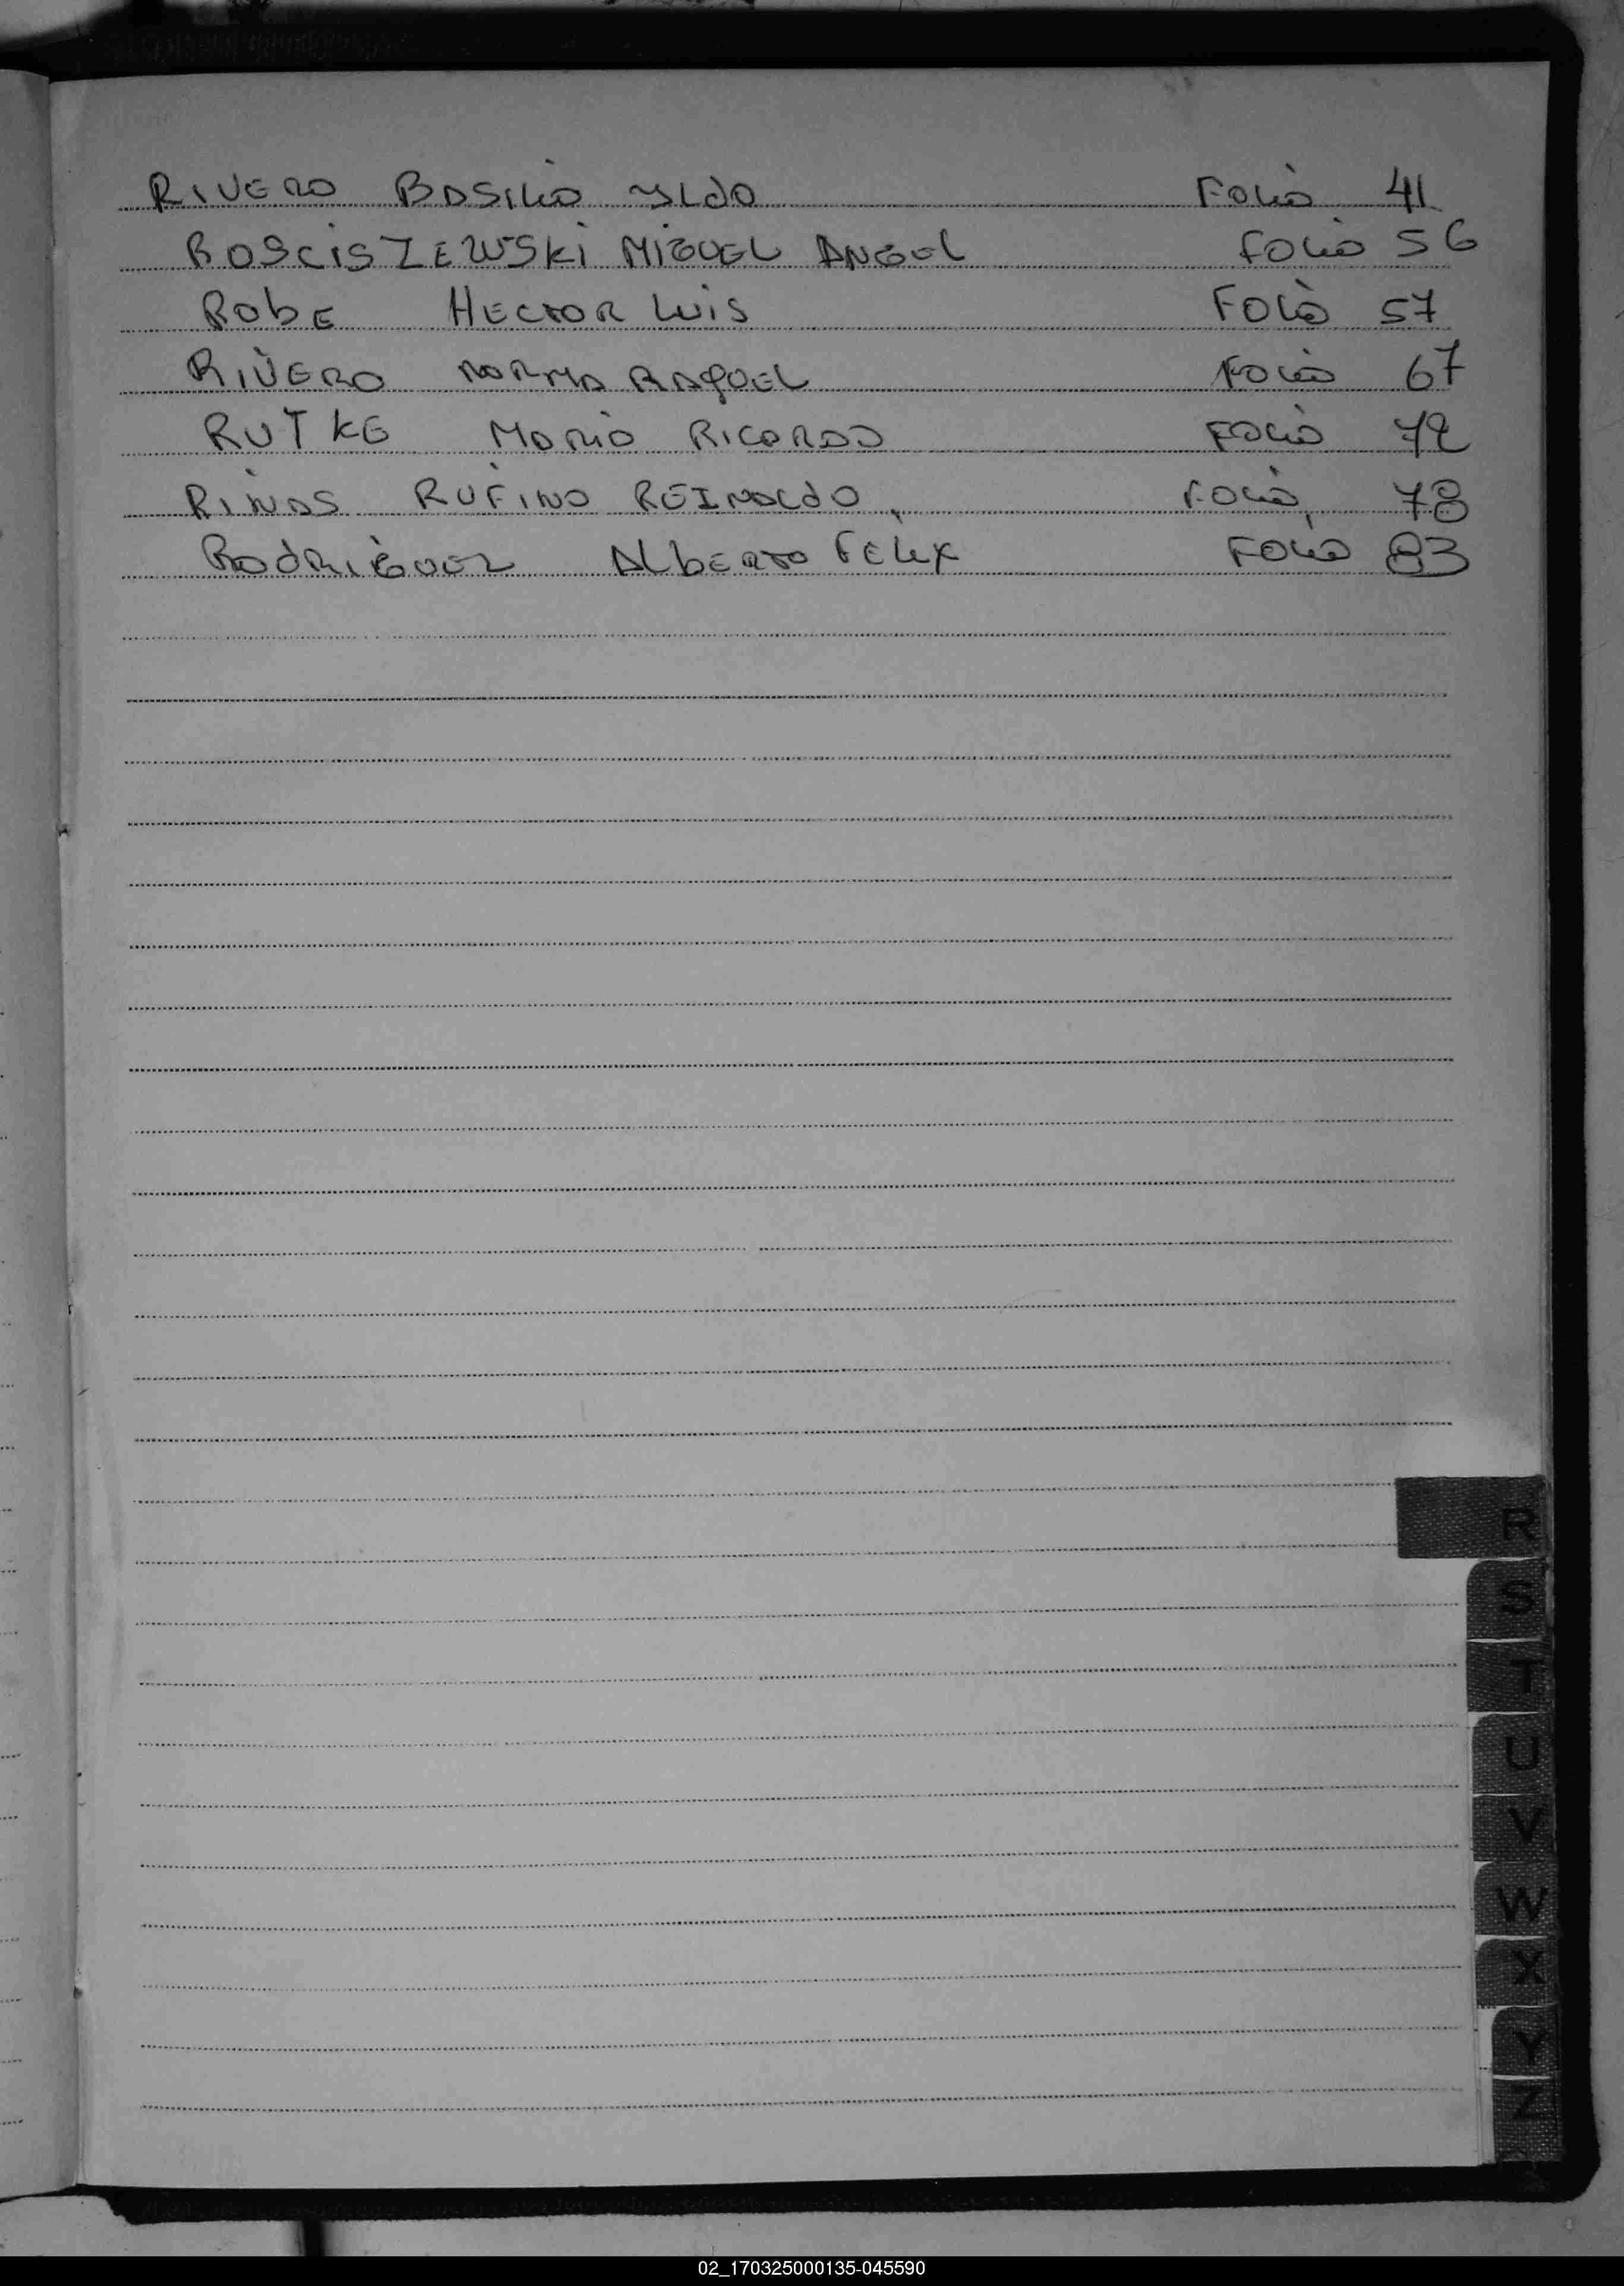 RIVERO BASILIO ILDO FOLIO 41
ROSCISZEWSKI MIGUEL ANGEL FOLIO 56
ROBE HECTOR LUIS FOLIO 57
RIVERO NORMA RAQUEL FOLIO 67
RUTKE MARIO RICARDO FOLIO 72
RINAS RUFINO REINALDO, FOLIO, 78
RODRIGUEZ ALBERTO FELIX FOLIO 83
R
S
T
U
V
W
X
Y
Z
02_170325000135-045590